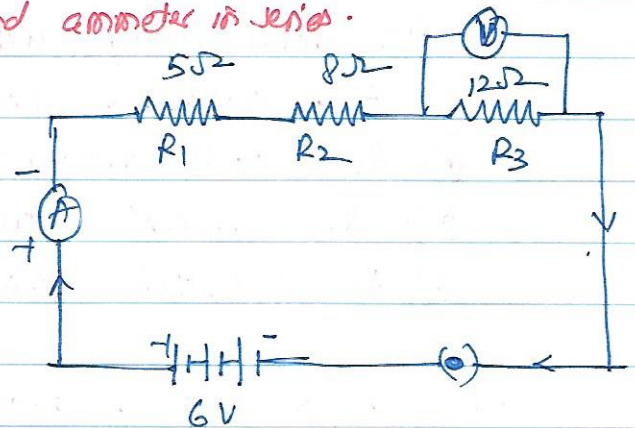 nd ammeter in series.
V
5Ω 8Ω 12Ω
R1 R2 R3
-
A
+
+ -
6V